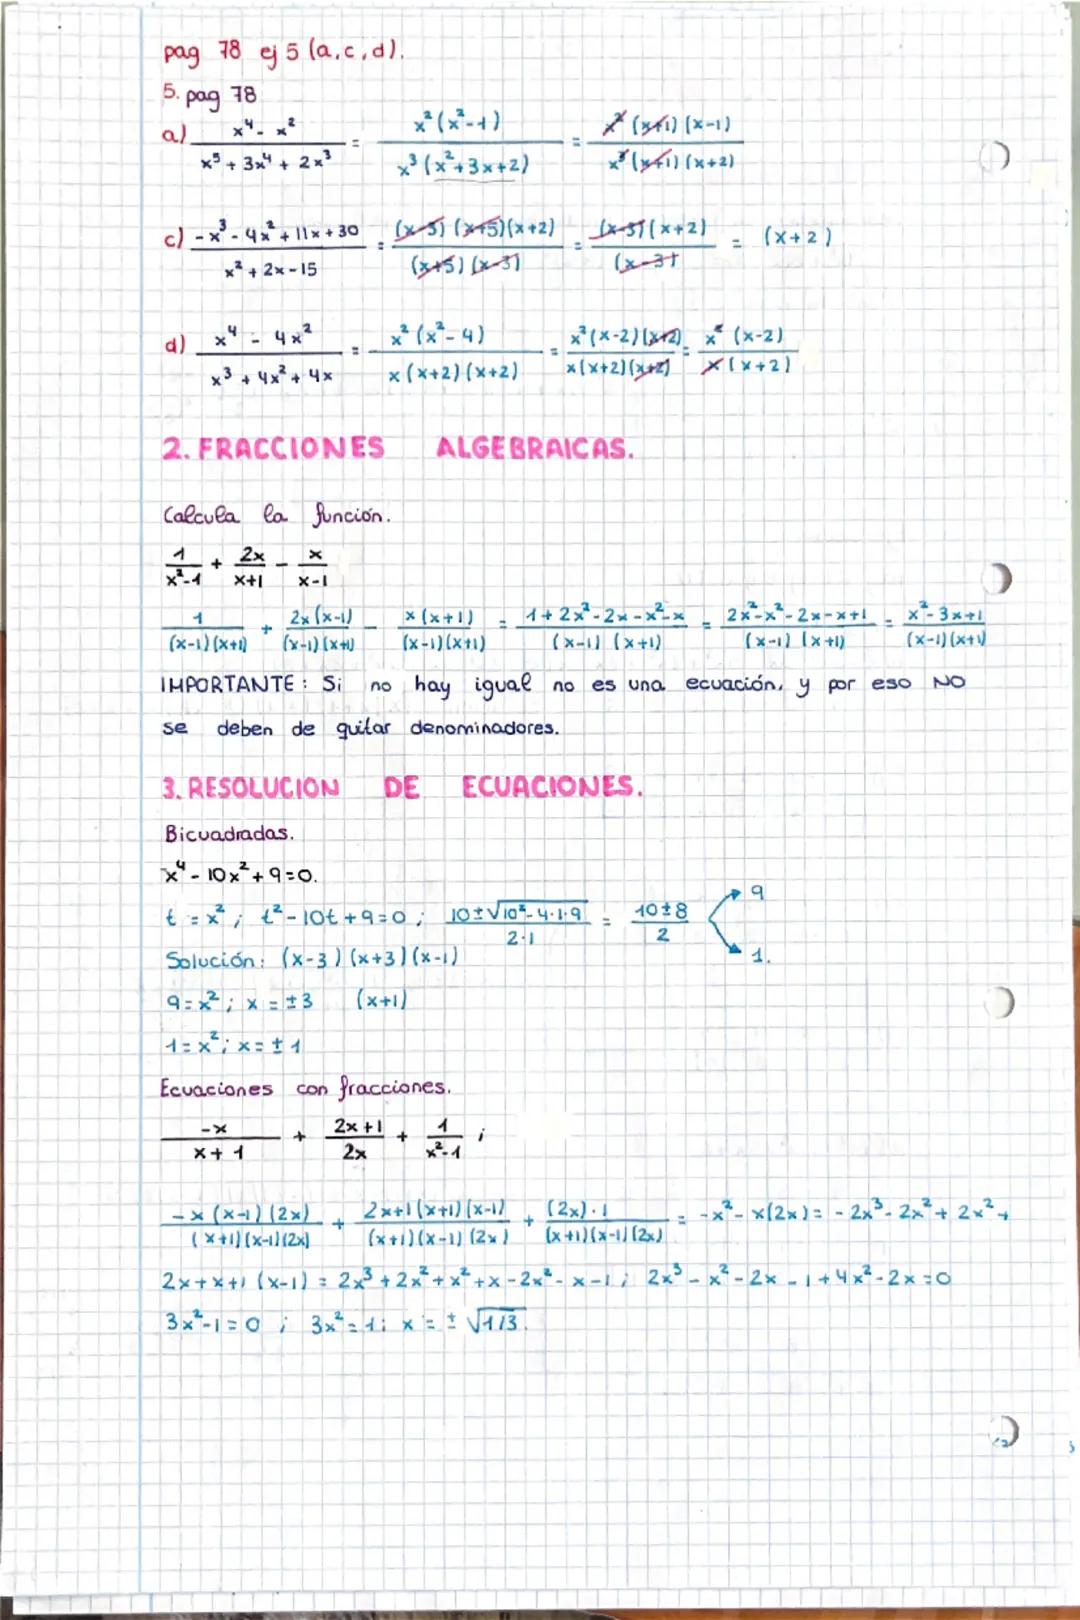 pag 78 ej 5 (a,c,d).
5. pag 78
a) x⁴ - x² / x⁵ + 3x⁴ + 2x³ = x²(x²-1) / x³(x²+3x+2) = x²(x+1)(x-1) / x³(x+1)(x+2)
c) -x³ - 4x² + 11x + 30 / x² + 2x - 15 = (x-3)(x+5)(x+2) / (x+5)(x-3) = (x-3)(x+2) / (x-3) = (x+2)
d) x⁴ - 4x² / x³ + 4x² + 4x = x²(x²-4) / x(x+2)(x+2) = x²(x-2)(x+2) / x(x+2)(x+2) = x²(x-2) / x(x+2)
2. FRACCIONES ALGEBRAICAS.
Calcula la función.
1 / x²-1 + 2x / x+1 - x / x-1
1 / (x-1)(x+1) + 2x(x-1) / (x-1)(x+1) - x(x+1) / (x-1)(x+1) = 1+2x²-2x-x²-x / (x-1)(x+1) = 2x²-x²-2x-x+1 / (x-1)(x+1) = x²-3x+1 / (x-1)(x+1)
IMPORTANTE: Si no hay igual no es una ecuación, y por eso NO
se deben de quitar denominadores.
3. RESOLUCION DE ECUACIONES.
Bicuadradas.
x⁴ - 10x² + 9 = 0.
t = x²; t² - 10t + 9 = 0; 10±√10²-4·1·9 / 2·1 = 10±8 / 2 9 1.
Solución: (x-3)(x+3)(x-1)
9 = x²; x = ±3 (x+1)
1 = x²; x = ±1
Ecuaciones con fracciones.
-x / x+1 + 2x+1 / 2x + 1 / x²-1 ;
-x(x-1)(2x) / (x+1)(x-1)(2x) + 2x+1(x+1)(x-1) / (x+1)(x-1)(2x) + (2x)·1 / (x+1)(x-1)(2x) = -x²-x(2x) = -2x³-2x²+2x²+
2x+x+1(x-1) = 2x³+2x²+x²+x-2x²-x-1; 2x³-x²-2x-1+4x²-2x=0
3x²-1=0; 3x²=1; x=±√1/3.